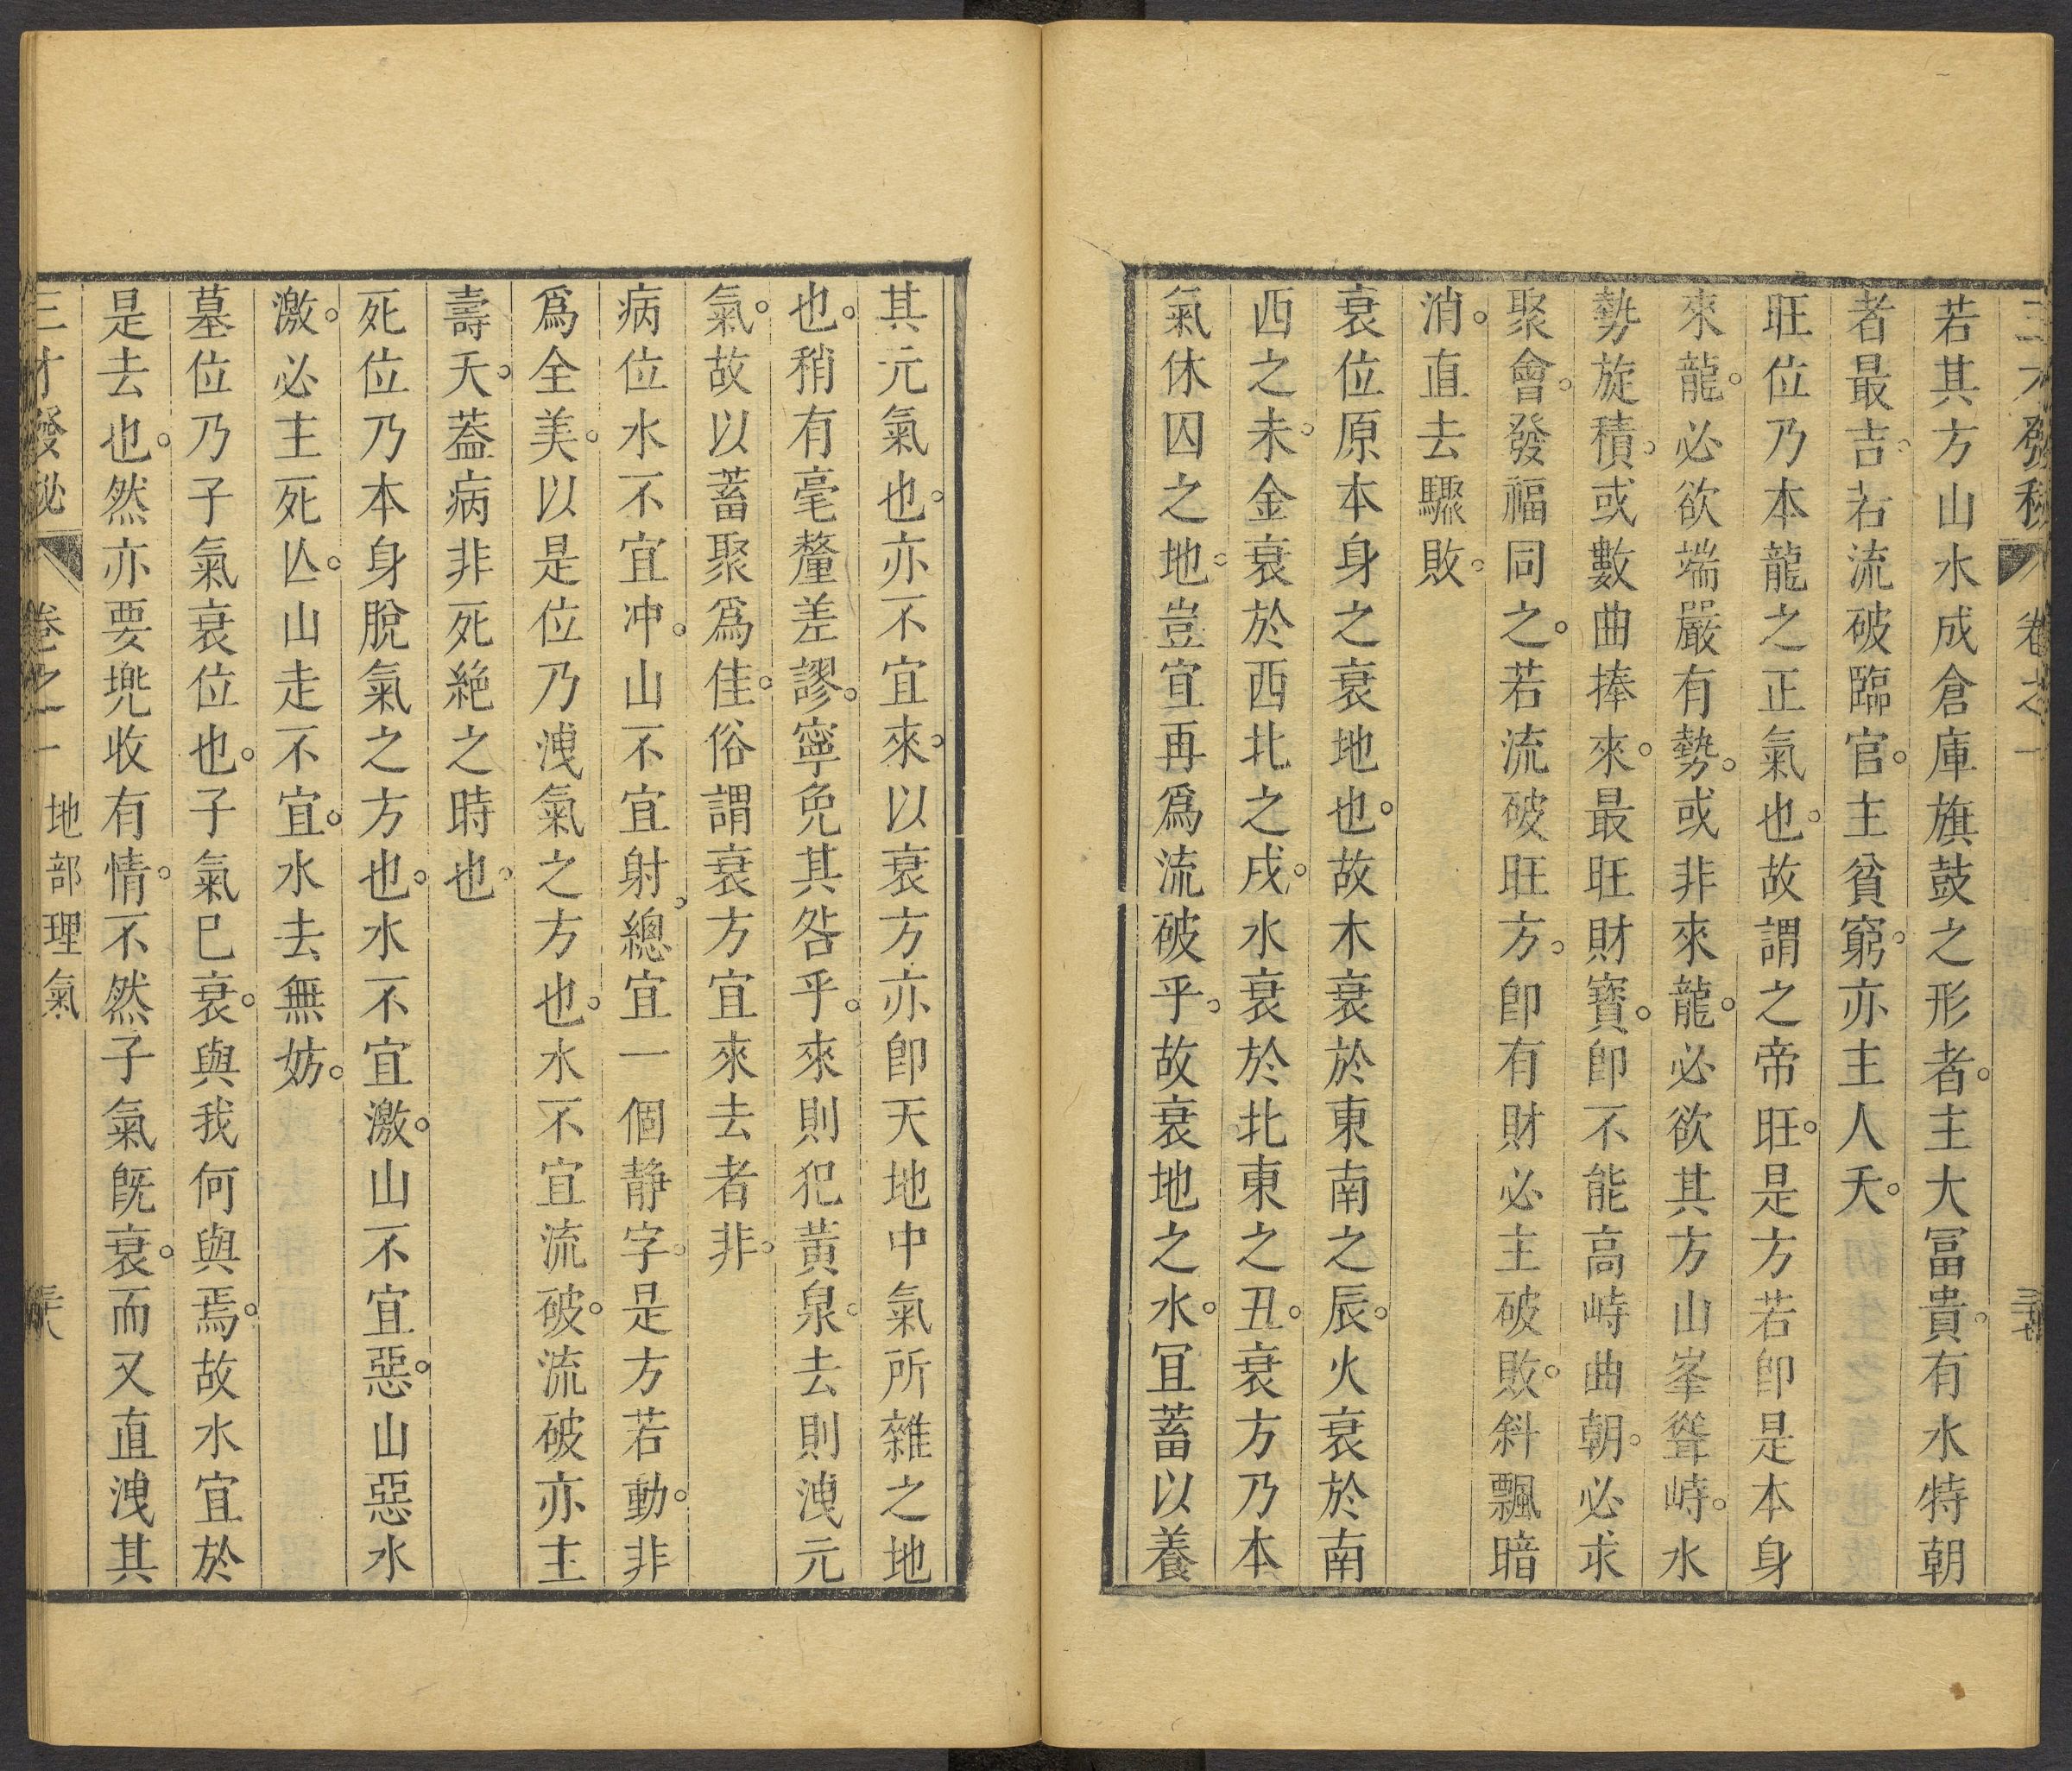 若其方山水成倉庫旗鼓之形者。主大冨貴。有水特朝
者最吉。若流破臨官。主貧窮。亦主人夭。
旺位乃本龍之正氣也。故謂之帝旺。是方若卽是本身
來龍。必欲端嚴有勢。或非來龍。必欲其方山峯聳峙。水
勢旋積。或數曲捧來。最旺財寳。卽不能高峙曲朝。必求
聚會。發福同之。若流破旺方。卽有財必主破敗。斜飄暗
消。直去驟敗。
衰位原本身之衰地也。故木衰於東南之辰。火衰於南
西之未。金衰於西北之戌。水衰於北東之丑。衰方乃本
氣休囚之地。豈宜再爲流破乎。故衰地之水。宜蓄以養
其元氣也。亦不宜來。以衰方亦卽天地中氣所雜之地
也。稍有毫釐差謬。寧免其咎乎。來則犯黃泉。去則洩元
氣。故以蓄聚爲佳。俗謂衰方宜來去者非。
病位水不宜冲。山不宜射。總宜一個静字。是方若動。非
爲全美。以是位乃洩氣之方也。水不宜流破。流破亦主
壽夭。葢病非死絕之時也。
死位乃本身脫氣之方也。水不宜激。山不宜惡。山惡水
激。必主死亾。山走不宜。水去無妨。
墓位乃子氣衰位也。子氣巳衰。與我何與焉。故水宜於
是去也。然亦要兠收有情。不然子氣旣衰。而又直洩其
三才發秘 卷之一 地部理氣 三十八